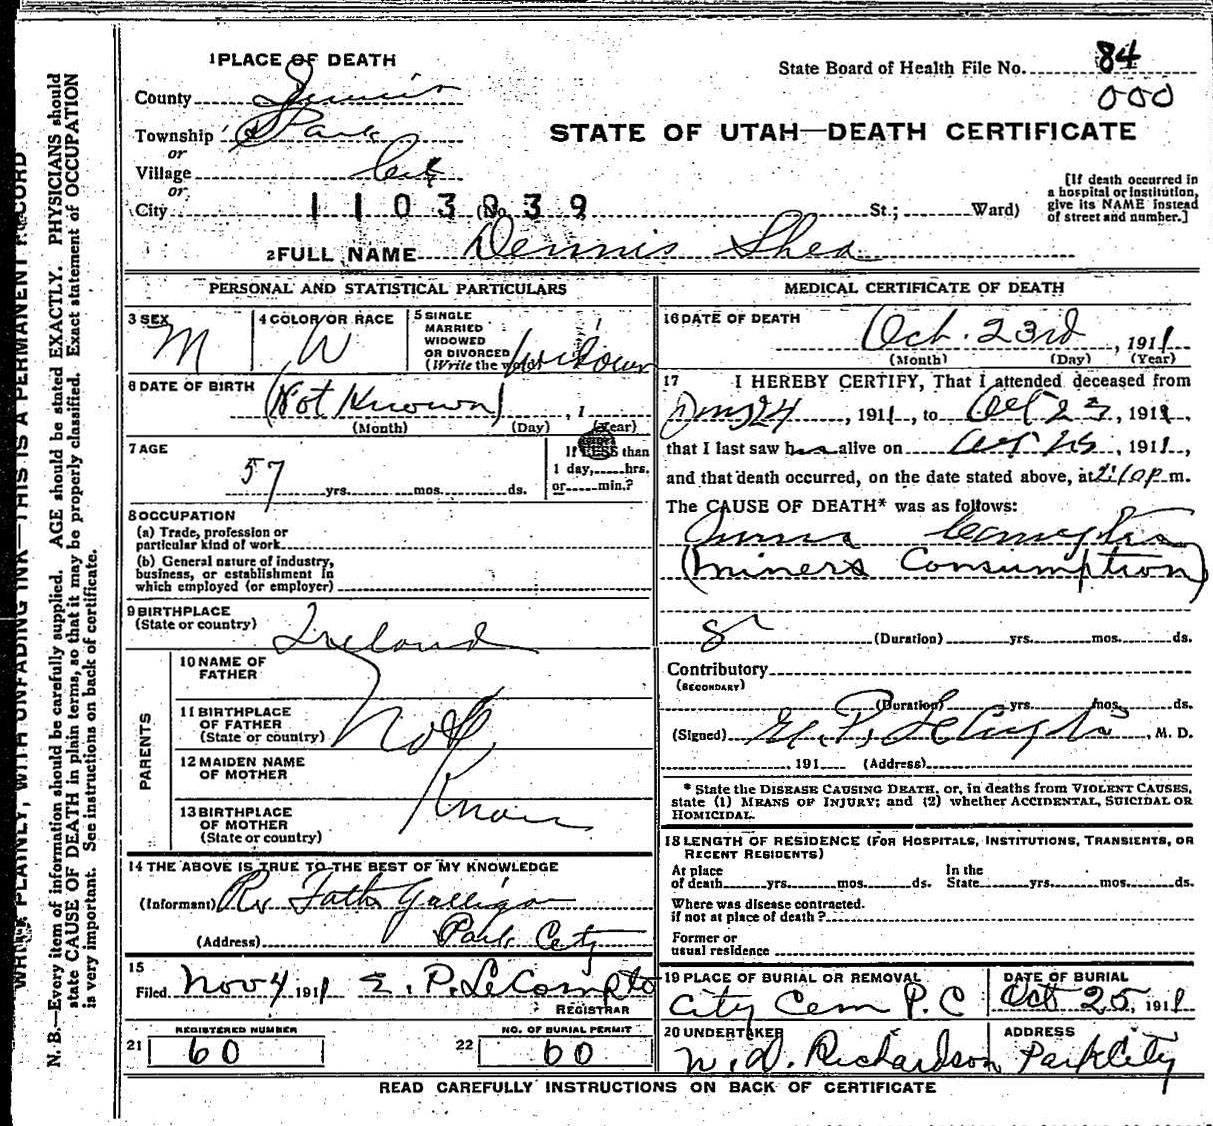 1 PLACE OF DEATH
State Board of Health File No. 84
000
County Summit
Township Park
or
Village City
or
City
1103039
(No. St.; Ward)
STATE OF UTAH—DEATH CERTIFICATE
[If death occurred in
a hospital or institution,
give its NAME instead
of street and number.]
2 FULL NAME Dennis Shea
PERSONAL AND STATISTICAL PARTICULARS
3 SEX
M
4 COLOR OR RACE
W
5 SINGLE
MARRIED
WIDOWED
OR DIVORCED
(Write the word)
6 DATE OF BIRTH
(Not Known) , 1
(Month) (Day) (Year)
7 AGE
57 yrs. mos. ds.
If LESS than
1 day, hrs.
or min.?
8 OCCUPATION
(a) Trade, profession or
particular kind of work
(b) General nature of industry,
business, or establishment in
which employed (or employer)
9 BIRTHPLACE
(State or country)
Ireland
PARENTS
10 NAME OF
FATHER
11 BIRTHPLACE
OF FATHER
(State or country)
Not
12 MAIDEN NAME
OF MOTHER
Known
13 BIRTHPLACE
OF MOTHER
(State or country)
14 THE ABOVE IS TRUE TO THE BEST OF MY KNOWLEDGE
(Informant) Rev Fath Galligan
(Address) Park City
15
Filed Nov 4 1911 E. P. LeCompte
REGISTRAR
21 REGISTERED NUMBER
60
22 NO. OF BURIAL PERMIT
60
MEDICAL CERTIFICATE OF DEATH
16 DATE OF DEATH
Oct. 23rd , 1911
(Month) (Day) (Year)
17 I HEREBY CERTIFY, That I attended deceased from
24 , 1911, to Oct 23, 1911,
that I last saw h alive on , 1911,
and that death occurred, on the date stated above, at 2:10 P.m.
The CAUSE OF DEATH* was as follows:
(miners Consumption)
(Duration) yrs. mos. ds.
Contributory
(SECONDARY)
(Duration) yrs. mos. ds.
(Signed) E. P. LeCompte, M. D.
, 191 (Address)
* State the DISEASE CAUSING DEATH, or, in deaths from VIOLENT CAUSES,
state (1) MEANS OF INJURY; and (2) whether ACCIDENTAL, SUICIDAL OR
HOMICIDAL.
18 LENGTH OF RESIDENCE (FOR HOSPITALS, INSTITUTIONS, TRANSIENTS, OR
RECENT RESIDENTS)
At place
of death yrs. mos. ds.
In the
State yrs. mos. ds.
Where was disease contracted.
if not at place of death?
Former or
usual residence
19 PLACE OF BURIAL OR REMOVAL
City Cem P.C
DATE OF BURIAL
Oct 25, 1911
20 UNDERTAKER
W. D. Richardson
ADDRESS
Park City
READ CAREFULLY INSTRUCTIONS ON BACK OF CERTIFICATE
WRITE PLAINLY, WITH UNFADING INK—THIS IS A PERMANENT RECORD
N. B.—Every item of information should be carefully supplied. AGE should be stated EXACTLY. PHYSICIANS should
state CAUSE OF DEATH in plain terms, so that it may be properly classified. Exact statement of OCCUPATION
is very important. See instructions on back of certificate.